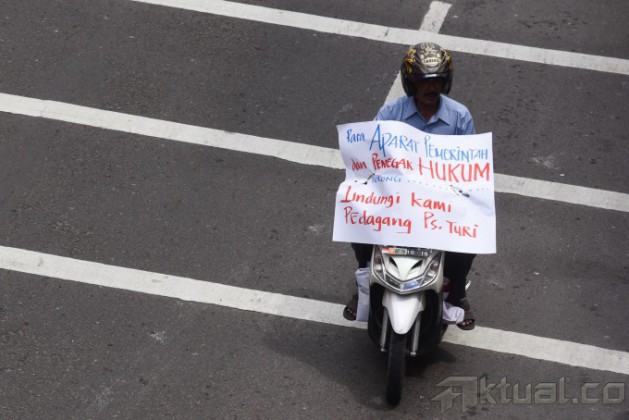 Para APARAT PEMERINTAH
dan PENEGAK HUKUM
TOLONG
Lindungi Kami
PEdagang Ps. TURI
Aktual.co